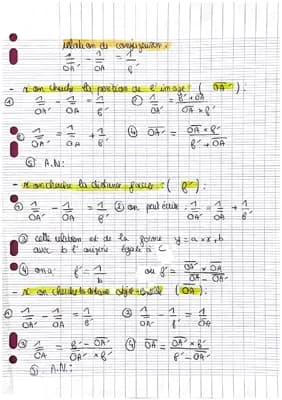 relation de conjugaison:
1/OA' - 1/OA = 1/f'
- si on cherche la position de l'image: (OA'):
① 1/OA' - 1/OA = 1/f' ② 1/OA' = f'+OA / OA × f'
③ 1/OA' = 1/OA + 1/f' ④ OA' = OA × f' / f' + OA
⑤ A.N:
- si on cherche la distance focale: (f'):
① 1/OA' - 1/OA = 1/f' ② on peut écrire: 1/OA' = 1/OA + 1/f'
③ cette relation est de la forme y = a × x, b
avec b l'origine égale à
④ on a: f' = 1/b ou f' = OA' × OA / OA - OA'
- si on cherche la distance objet- (OA):
① 1/OA' - 1/OA = 1/f' ② 1/OA' - 1/f' = 1/OA
③ 1/OA = f' - OA' / OA' × f' ④ OA = OA' × f' / f' - OA'
⑤ A.N: